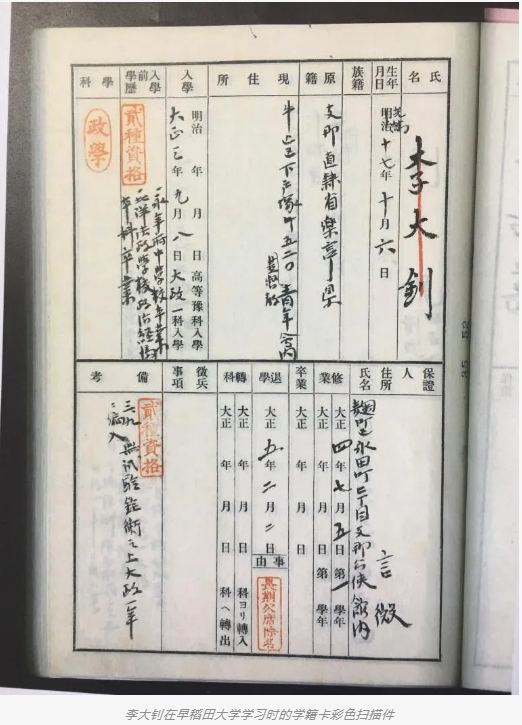 氏名
李大釗
生年月日
光緒
明治十七年十月六日
族籍
原籍
支那直隷省樂亭県
現住所
牛込区下戸塚町五二〇青年会内
入學
明治 年 月 日高等豫科入學
大正三年九月八日大政一科入學
入學前學歷
貳種資格
永平府中學校卒業
北洋法政學校政治經済
本科卒業
學科
政學
保證人
氏名
言微
住所
麹町区永田町二丁目支那公使館内
修業
大正四年七月五日第一學年
大正 年 月 日第 學年
卒業
大正 年 月 日
退學
大正五年二月二日
事由
長期欠席除名
轉科
大正 年 月 日 科ヨリ轉入
大正 年 月 日 科ヘ轉出
徴兵事項
備考
貳種資格
三、九、無試驗銓衡之上大政一年
ニ編入
李大钊在早稻田大学学习时的学籍卡彩色扫描件